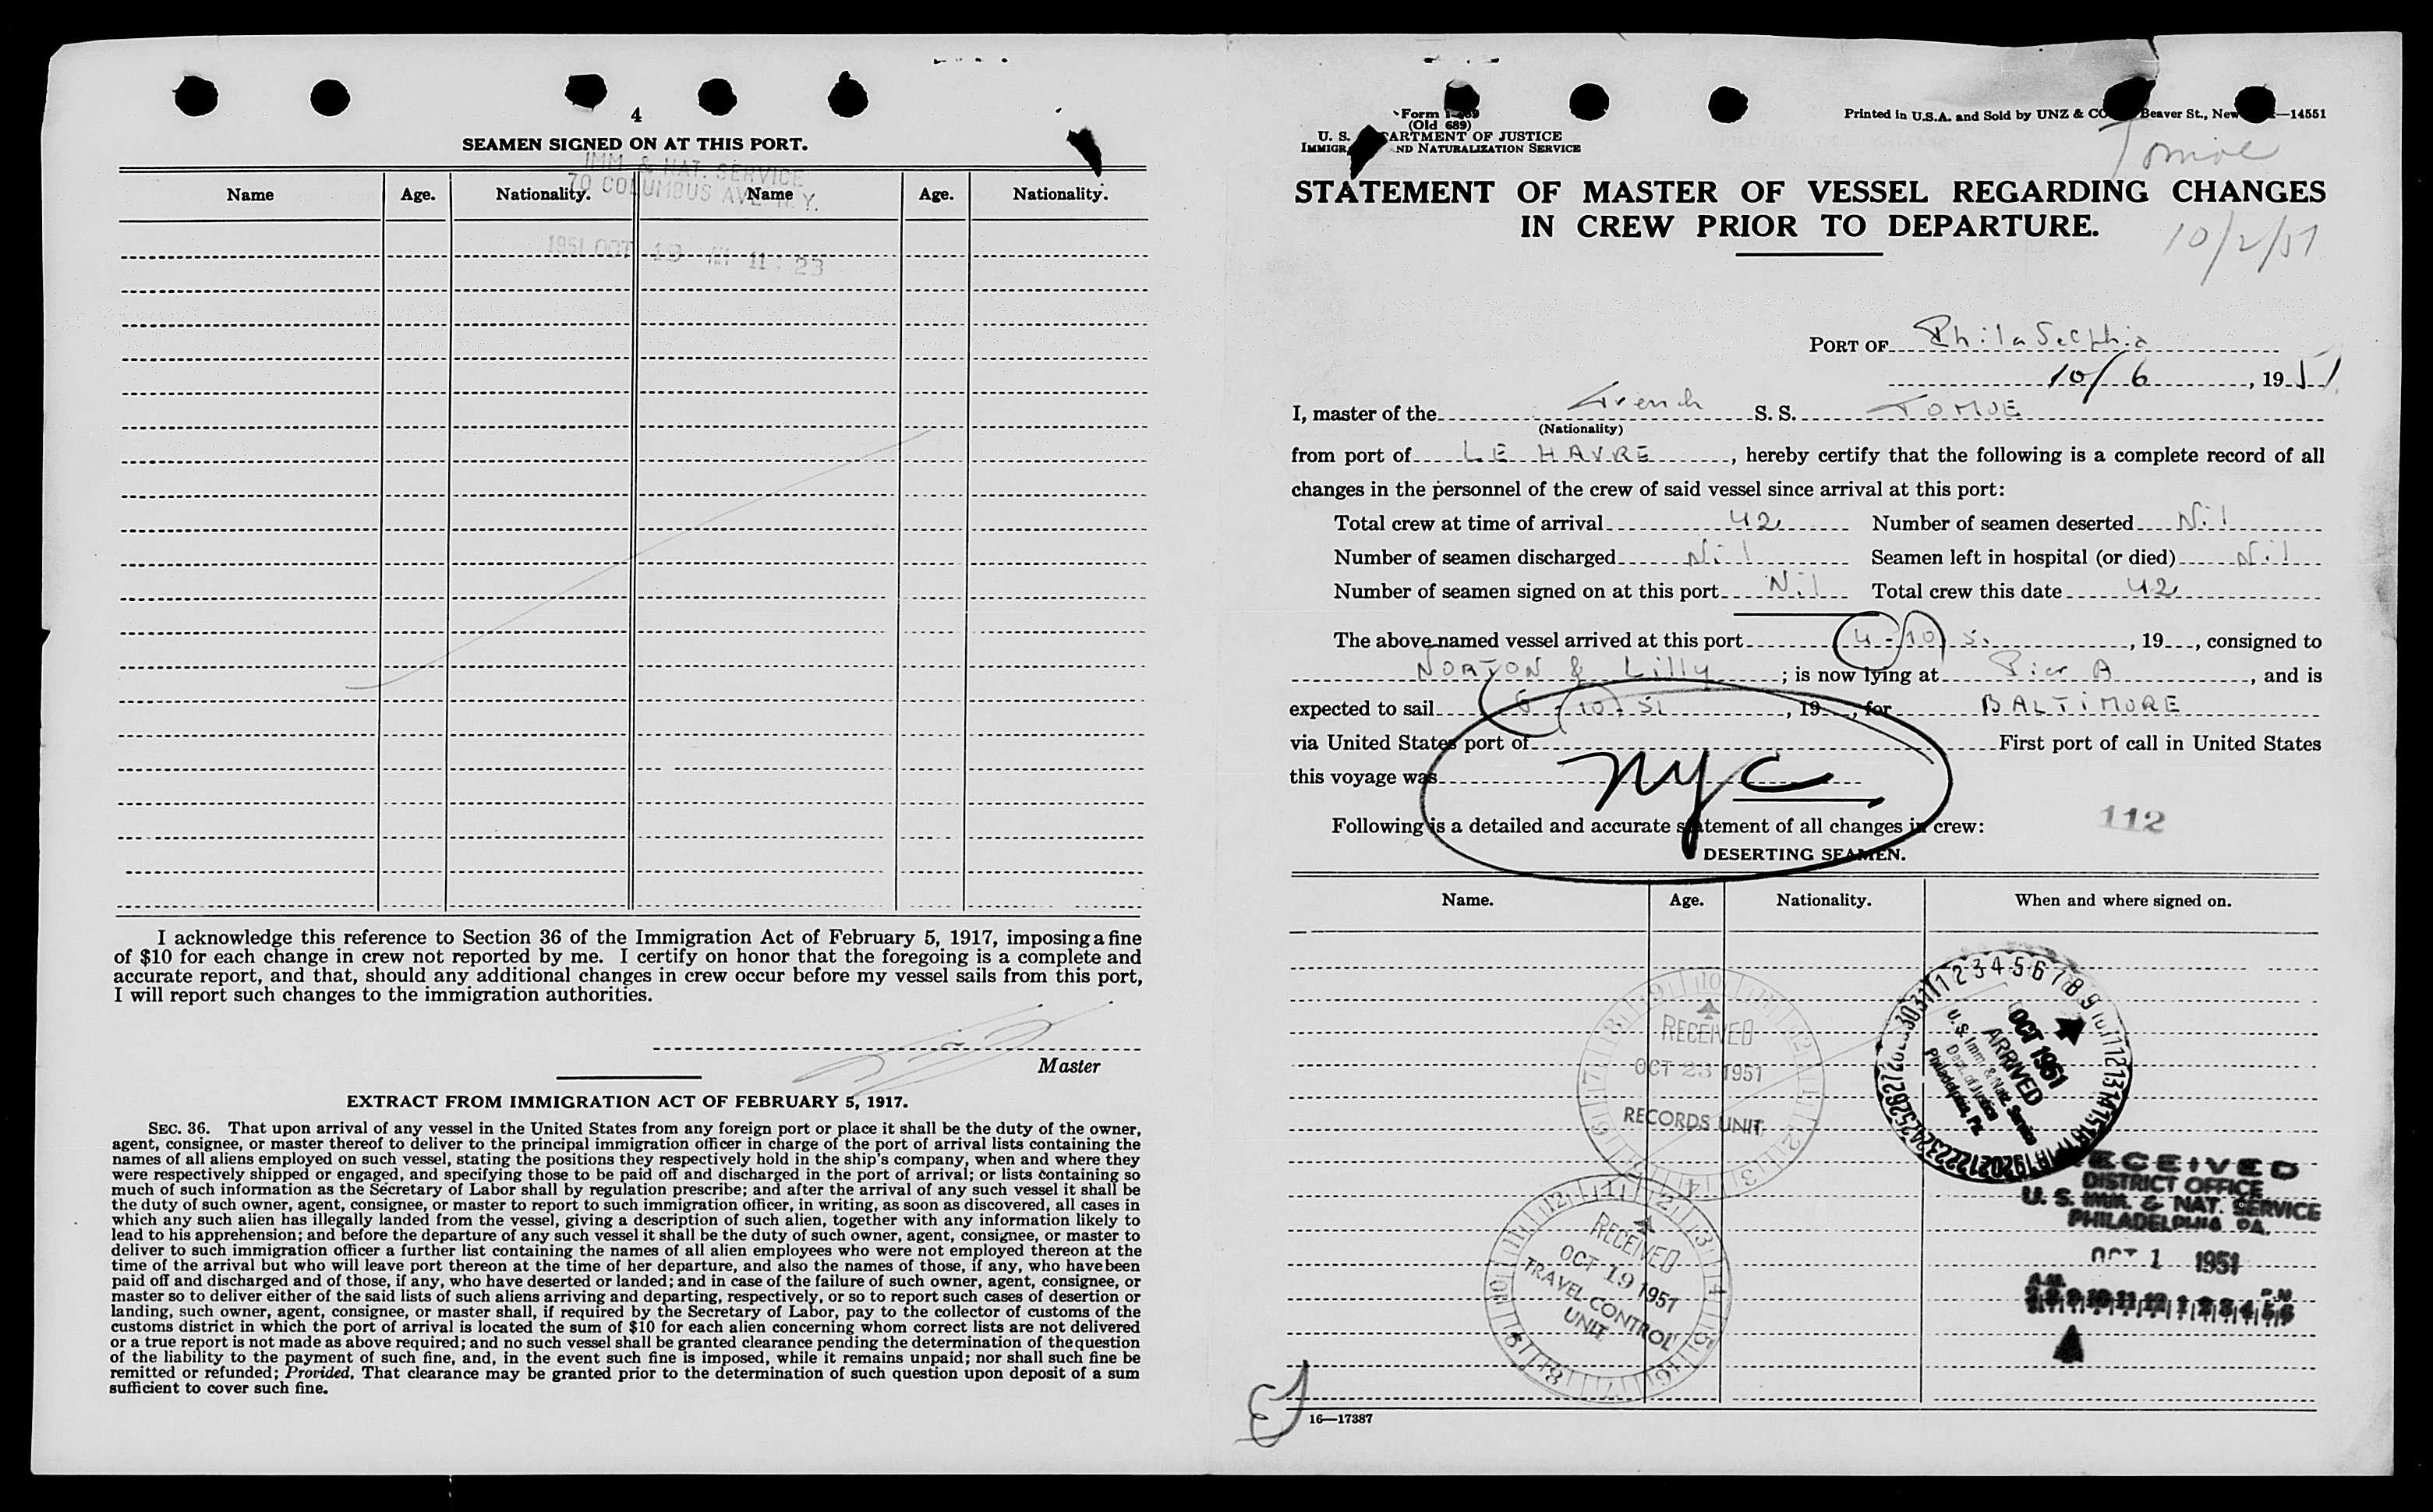 4
SEAMEN SIGNED ON AT THIS PORT.
IMM. & NAT. SERVICE
70 COLUMBUS AVE. N. Y.
Name Age. Nationality. Name Age. Nationality.
1951 OCT 19 AM 11:23
I acknowledge this reference to Section 36 of the Immigration Act of February 5, 1917, imposing a fine
of $10 for each change in crew not reported by me. I certify on honor that the foregoing is a complete and
accurate report, and that, should any additional changes in crew occur before my vessel sails from this port,
I will report such changes to the immigration authorities.
Master
EXTRACT FROM IMMIGRATION ACT OF FEBRUARY 5, 1917.
SEC. 36. That upon arrival of any vessel in the United States from any foreign port or place it shall be the duty of the owner,
agent, consignee, or master thereof to deliver to the principal immigration officer in charge of the port of arrival lists containing the
names of all aliens employed on such vessel, stating the positions they respectively hold in the ship's company, when and where they
were respectively shipped or engaged, and specifying those to be paid off and discharged in the port of arrival; or lists containing so
much of such information as the Secretary of Labor shall by regulation prescribe; and after the arrival of any such vessel it shall be
the duty of such owner, agent, consignee, or master to report to such immigration officer, in writing, as soon as discovered, all cases in
which any such alien has illegally landed from the vessel, giving a description of such alien, together with any information likely to
lead to his apprehension; and before the departure of any such vessel it shall be the duty of such owner, agent, consignee, or master to
deliver to such immigration officer a further list containing the names of all alien employees who were not employed thereon at the
time of the arrival but who will leave port thereon at the time of her departure, and also the names of those, if any, who have been
paid off and discharged and of those, if any, who have deserted or landed; and in case of the failure of such owner, agent, consignee, or
master so to deliver either of the said lists of such aliens arriving and departing, respectively, or so to report such cases of desertion or
landing, such owner, agent, consignee, or master shall, if required by the Secretary of Labor, pay to the collector of customs of the
customs district in which the port of arrival is located the sum of $10 for each alien concerning whom correct lists are not delivered
or a true report is not made as above required; and no such vessel shall be granted clearance pending the determination of the question
of the liability to the payment of such fine, and, in the event such fine is imposed, while it remains unpaid; nor shall such fine be
remitted or refunded; Provided, That clearance may be granted prior to the determination of such question upon deposit of a sum
sufficient to cover such fine.
Form
(Old 689)
U. S. DEPARTMENT OF JUSTICE
IMMIGR ND NATURALIZATION SERVICE
Printed in U.S.A. and Sold by UNZ & CO Beaver St., New —14551
STATEMENT OF MASTER OF VESSEL REGARDING CHANGES
IN CREW PRIOR TO DEPARTURE.
10/2/51
PORT OF Philadelphia
10/6, 1951
I, master of the French S. S.
(Nationality)
from port of LE HAVRE, hereby certify that the following is a complete record of all
changes in the personnel of the crew of said vessel since arrival at this port:
Total crew at time of arrival 42 Number of seamen deserted Nil
Number of seamen discharged Nil Seamen left in hospital (or died) Nil
Number of seamen signed on at this port Nil Total crew this date 42
The above-named vessel arrived at this port 4-10 5., 19, consigned to
NORTON & Lilly; is now lying at Pier A, and is
expected to sail 6-10-51, 19, for BALTIMORE
via United States port of First port of call in United States
this voyage was nyc
Following is a detailed and accurate statement of all changes in crew:
112
DESERTING SEAMEN.
Name. Age. Nationality. When and where signed on.
RECEIVED
OCT 23 1951
RECORDS UNIT
OCT 1951
ARRIVED
U. S. Imm. & Natz. Service
Dept. of Justice
Philadelphia, Pa.
RECEIVED
DISTRICT OFFICE
U. S. IMM. & NAT. SERVICE
PHILADELPHIA PA.
OCT 1 1951
RECEIVED
OCT 19 1951
TRAVEL CONTROL
UNIT
16—17387